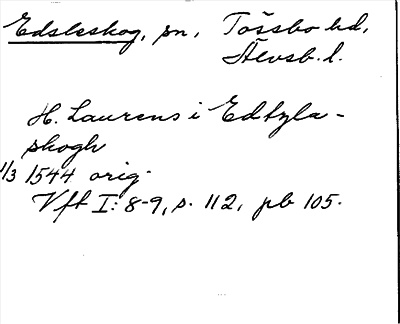 Edsleskog, sn, Tössbo hd,
Älvsb. l.
H. Laurens i Edtzla-
skogh
1/3 1544 orig.
Vft I: 8-9, s. 112, pb 105.